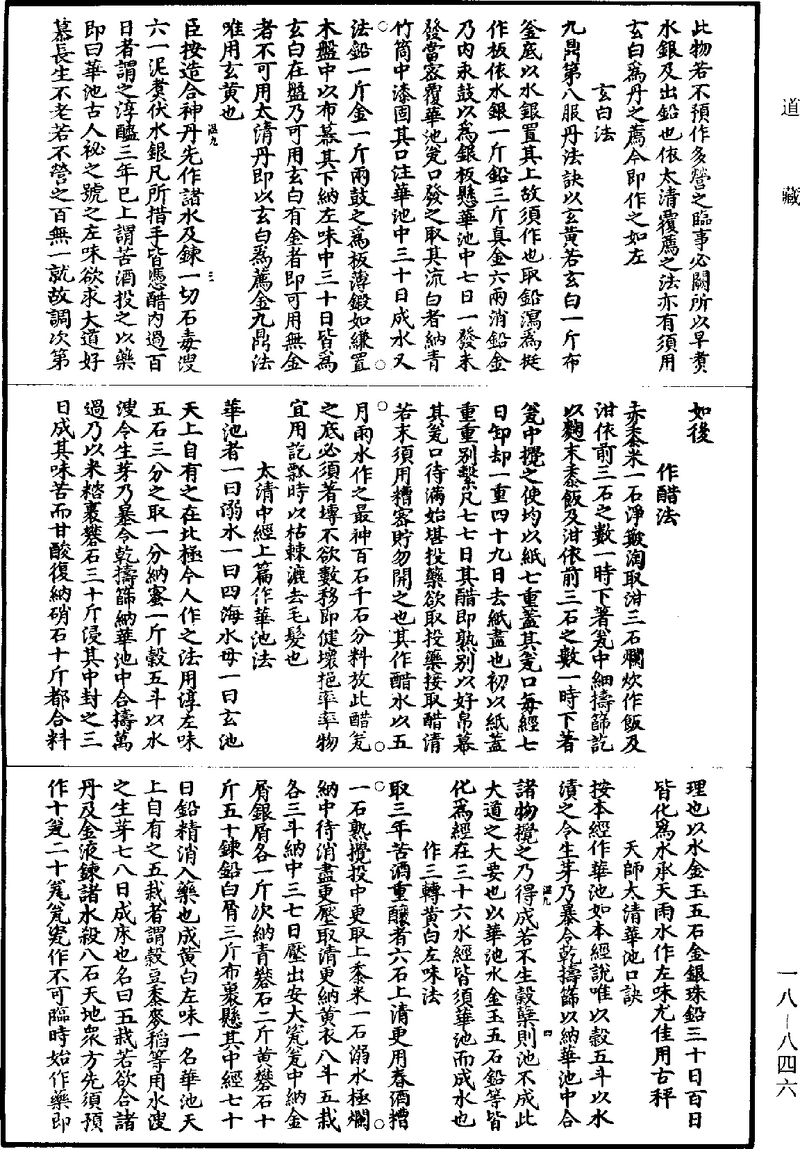 道藏
此物若不預作多營之臨事必闕所以早煮
水銀及出鉛也依太清覆薦之法亦有須用
玄白為丹之薦今即作之如左
玄白法
九鼎第八服丹法訣以玄黃若玄白一斤布
釜底以水銀置其上故須作也取鉛瀉為挺
作板依水銀一斤鉛三斤真金六兩消鉛金
乃內汞鼓以為銀板懸華池中七日一發未
發當密覆華池瓮口發之取其流白者納青
竹筒中漆固其口注華池中三十日成水又
法鉛一斤金一斤兩鼓之為板薄鍛如縑置
木盤中以布幕其下納左味中三十日皆為
玄白在盤乃可用玄白有金者即可用無金
者不可用太清丹即以玄白為薦金九鼎法
唯用玄黃也
臣按造合神丹先作諸水及鍊一切石毒溲
六一泥煮伏水銀凡所措手皆憑醋內過百
日者謂之淳醯三年已上謂苦酒投之以藥
即曰華池古人祕之號之左味欲求大道好
慕長生不老若不營之百無一就故調次第
如後
作醋法
赤黍米一石淨簸淘取泔三石爛炊作飯及
泔依前三石之數一時下著瓮中細擣篩訖
以麴末黍飯及泔依前三石之數一時下著
瓮中攪之使均以紙七重蓋其瓮口每經七
日卸却一重四十九日去紙盡也初以紙蓋
重重別繫凡七七日其醋即熟別以好帛幕
其瓮口待滿始堪投藥欲取投藥接取醋清
若未須用糟密貯勿開之也其作醋水以五
月雨水作之最神百石千石分料放此醋瓮
之底必須著塼不欲數移即健壞挹率率物
宜用訖瓢時以枯棘漉去毛髮也
太清中經上篇作華池法
華池者一曰溺水一曰四海水母一曰玄池
天上自有之在北極今人作之法用淳左味
五石三分之取一分納蜜一斤穀五斗以水
溲令生芽乃暴令乾擣篩納華池中合擣萬
過乃以米糌裹礬石三十斤浸其中封之三
日成其味苦而甘酸復納硝石十斤都合料
理也以水金玉五石金銀珠鉛三十日百日
皆化為水承天雨水作左味尤佳用古秤
天師太清華池口訣
按本經作華池如本經說唯以穀五斗以水
漬之令生芽乃暴令乾擣篩以納華池中合
諸物攪之乃得成若不生穀糵則池不成此
大道之大要也以華池水金玉五石鉛等皆
化為經在三十六水經皆須華池而成水也
作三轉黃白左味法
取三年苦酒重釀者六石上清更用春酒糟
一石熟攪投中更取上黍米一石溺水極爛
納中待消盡更壓取清更納黃衣八斗五栽
各三斗納中三七日壓出安大瓮瓮中納金
屑銀屑各一斤次納青礬石二斤黃礬石十
斤五十鍊鉛白屑三斤布裹懸其中經七十
日鉛精消入藥也成黃白左味一名華池天
上自有之五栽者謂穀豆黍麥稻等用水溲
之生芽七八日成床也名曰五栽若欲合諸
丹及金液鍊諸水殺八石天地眾方先須預
作十瓮二十瓮瓮瓮作不可臨時始作藥即
溫九
三
溫九
四
一八－八四六